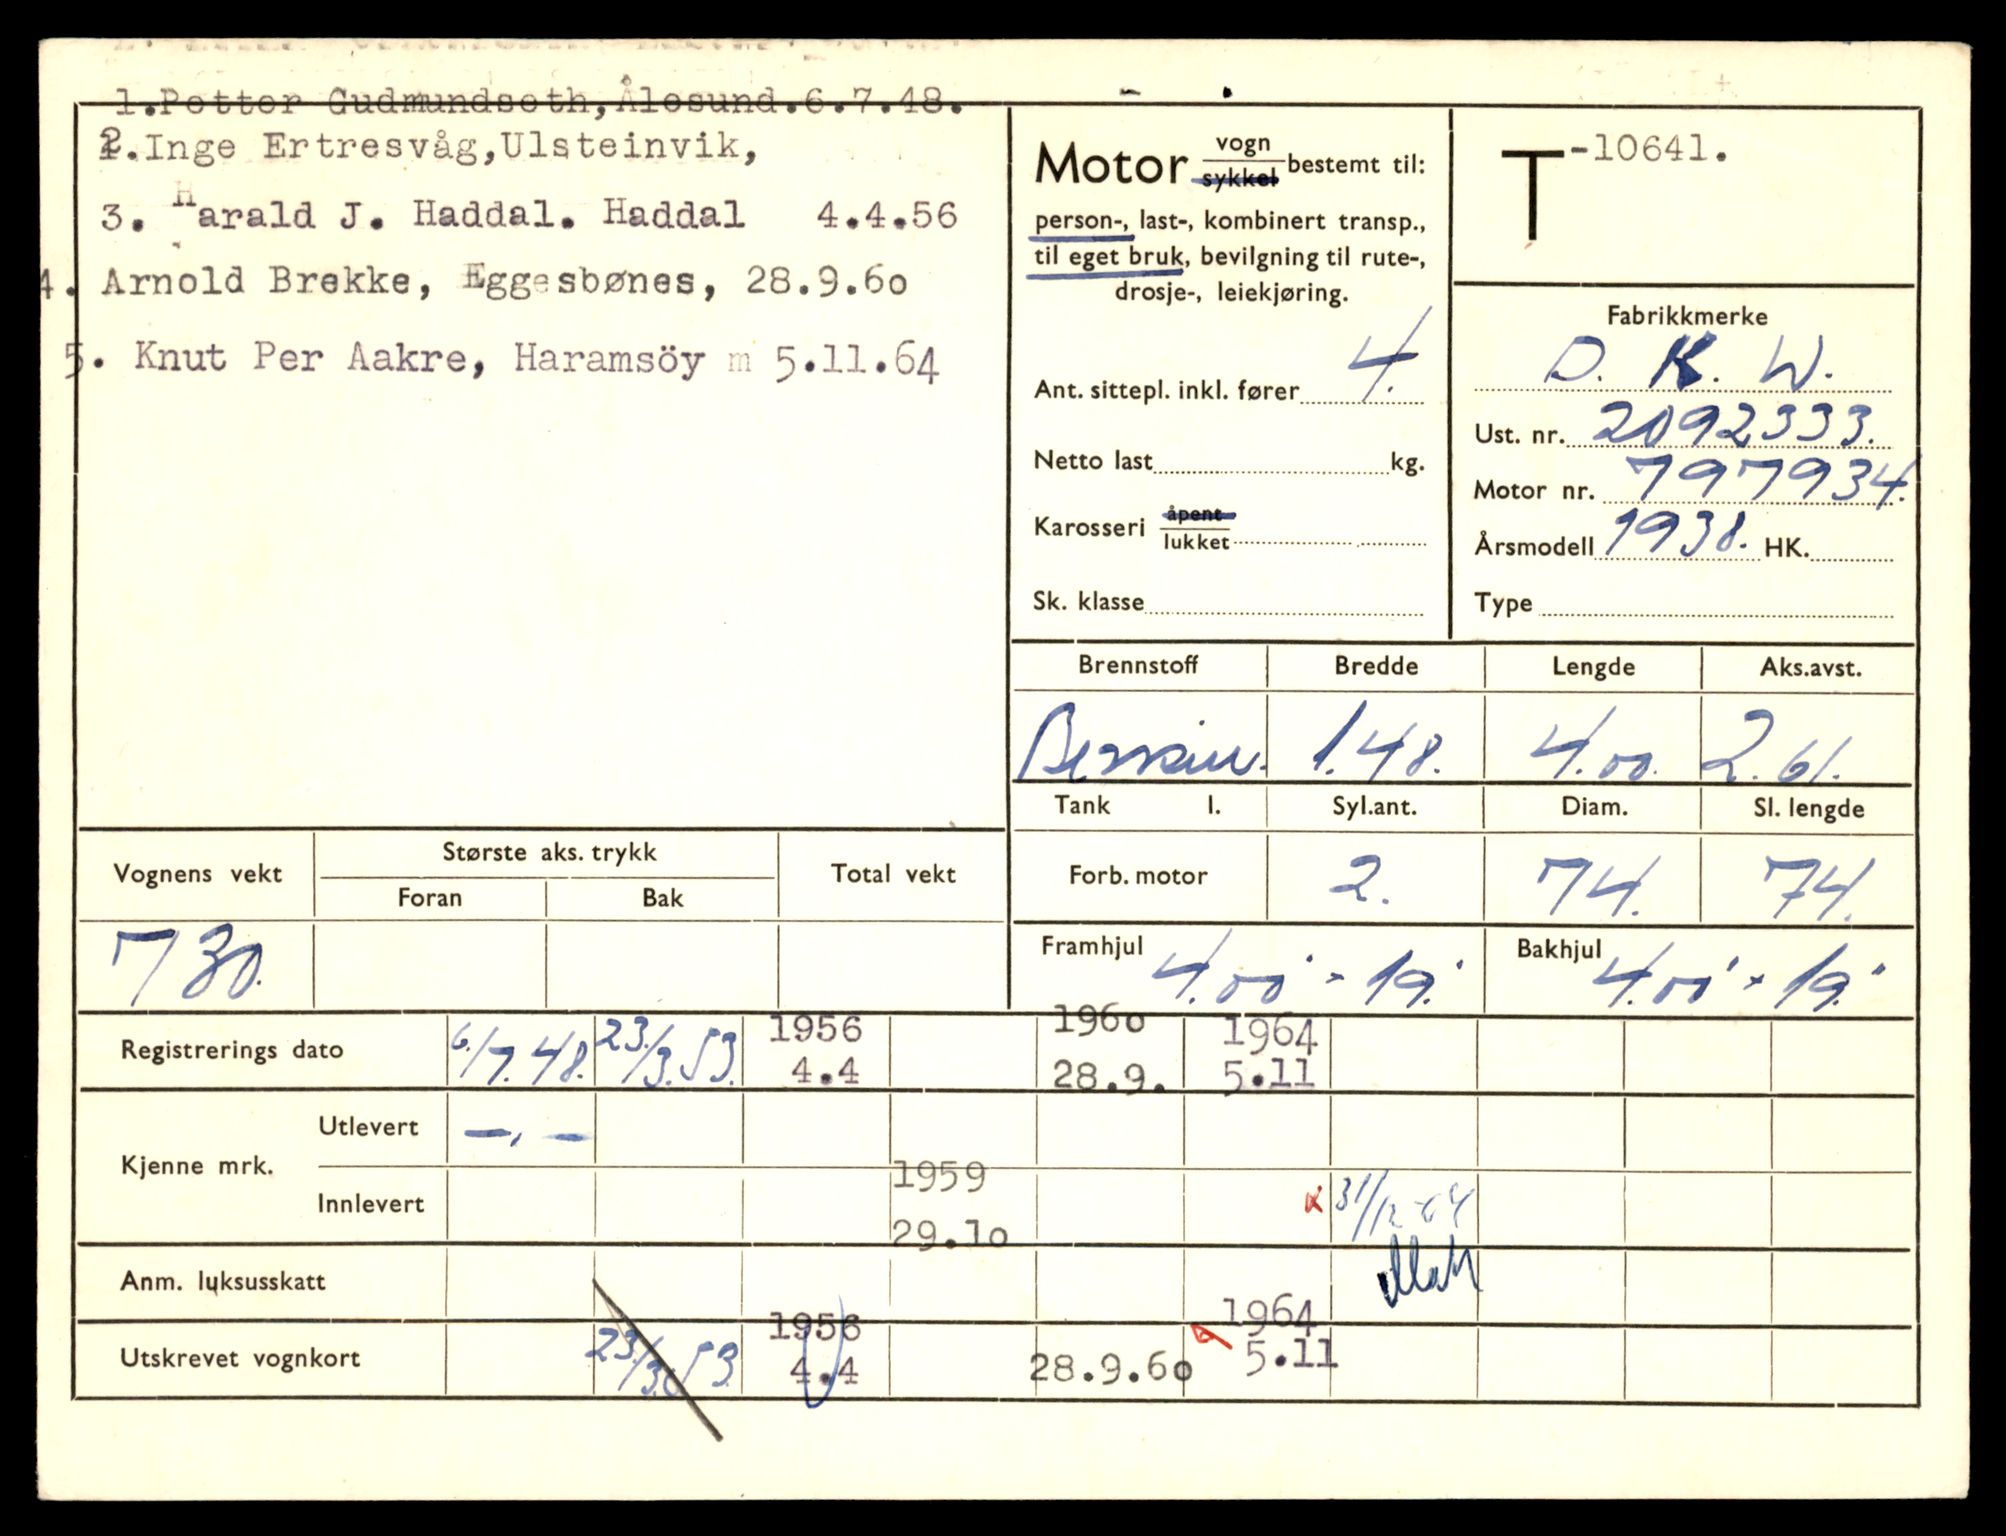 1.Petter Gudmundseth,Ålesund.6.7.48.
2.Inge Ertresvåg,Ulsteinvik,
3. Harald J. Haddal. Haddal 4.4.56
4. Arnold Brekke, Eggesbønes, 28.9.60
5. Knut Per Aakre, Haramsöy m 5.11.64
Motor vogn sykkel bestemt til:
person-, last-, kombinert transp.,
til eget bruk, bevilgning til rute-,
drosje-, leiekjøring.
Ant. sittepl. inkl. fører 4.
Netto last kg.
Karosseri åpent lukket
Sk. klasse
T-10641.
Fabrikkmerke
D. K. W.
Ust. nr. 2092333.
Motor nr. 797934.
Årsmodell 1938. HK.
Type
Brennstoff Bredde Lengde Aks.avst.
Bensin. 1.48. 4.00. 2.61.
Tank l. Syl.ant. Diam. Sl. lengde
Forb. motor 2. 74. 74.
Framhjul 4.00" × 19." Bakhjul 4.00" × 19."
Vognens vekt Største aks. trykk Total vekt
Foran Bak
730.
Registrerings dato 6/7.48. 23./3.53. 1956 4.4 1960 28.9. 1964 5.11
Kjenne mrk. Utlevert —.—
Innlevert 1959 29.10 x 31/12-64
Anm. luksusskatt
Utskrevet vognkort 23./3.53. 1956 4.4 28.9.60 1964 5.11